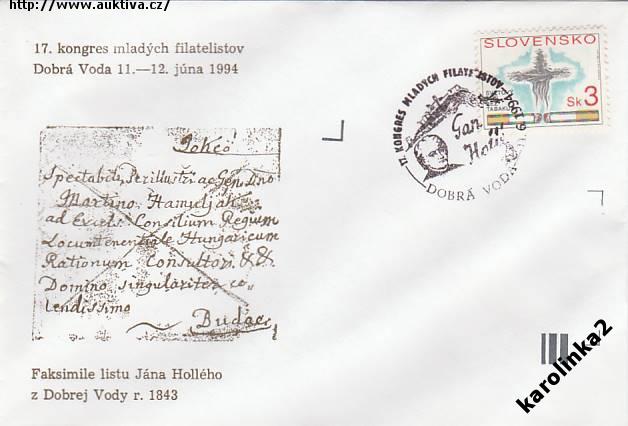 http://www.auktiva.cz/
17. kongres mladých filatelistov
Dobrá Voda 11.—12. júna 1994
SLOVENSKO
Sk 3
TABAKU
17. KONGRES MLADÝCH FILATELISTOV
6 1994
DOBRÁ VODA
Spectabili, Perillustri ac Gen. Dno
Martino Hamuljak
ad Excels. Consilium Regium
Locumtenentiale Hungaricum
Rationum Consultori, &&
Domino singulariter co
lendissimo
Budae
Faksimile listu Jána Hollého
z Dobrej Vody r. 1843
karolinka2